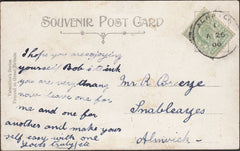 SOUVENIR POST CARD
I hope you are enjoying
yourself Bob & Dick
you are very
now leave one for
me and one for
another and make your
self easy with one
Mr R
Snableazes
Alnwick